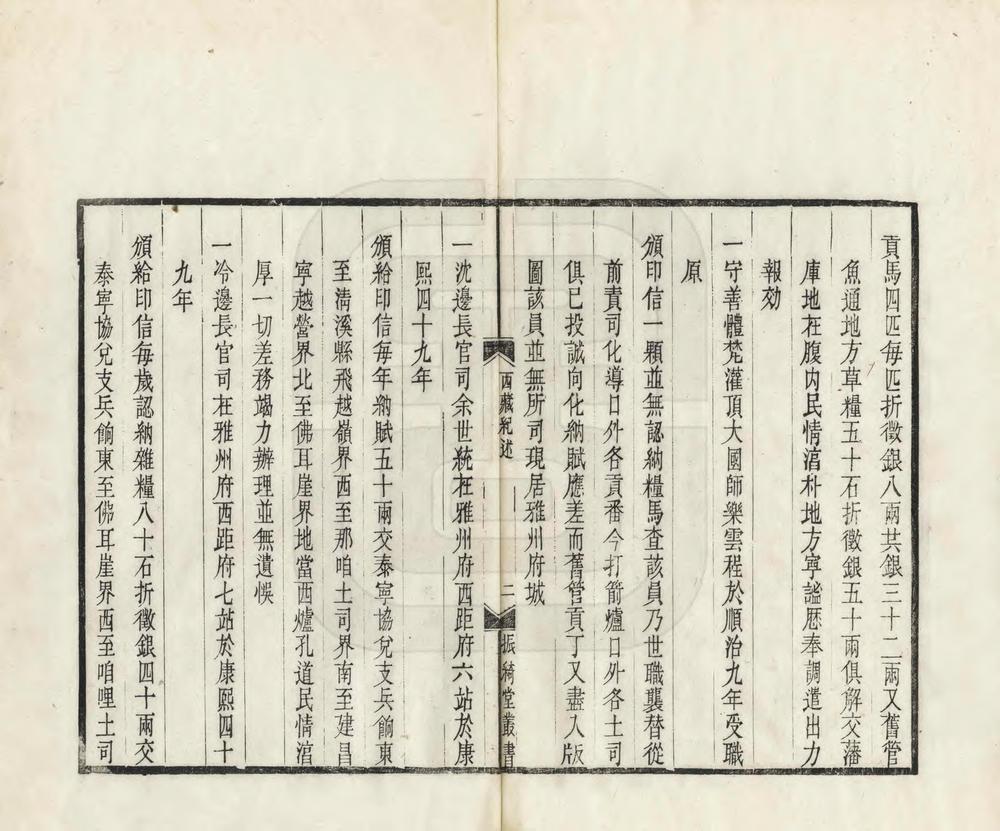 貢馬四匹每匹折徵銀八兩共銀三十二兩又舊管
魚通地方草糧五十石折徵銀五十兩俱解交藩
庫地在腹内民情淳朴地方寧謐歷奉調遣出力
報効
一守善體梵灌頂大國師樂雲程於順治九年受職
原
頒印信一顆並無認納糧馬查該員乃世職襲替從
前責司化導口外各貢番今打箭爐口外各土司
俱已投誠向化納賦應差而舊管貢丁又盡入版
圖該員並無所司現居雅州府城
西藏紀述
二
振綺堂叢書
一沈邊長官司余世統在雅州府西距府六站於康
熙四十九年
頒給印信每年納賦五十兩交泰寧協兌支兵餉東
至清溪縣飛越嶺界西至那咱土司界南至建昌
寧越營界北至佛耳崖界地當西爐孔道民情淳
厚一切差務竭力辦理並無遺悞
一冷邊長官司在雅州府西距府七站於康熙四十
九年
頒給印信每歲認納雜糧八十石折徵銀四十兩交
泰寧協兌支兵餉東至佛耳崖界西至咱哩土司